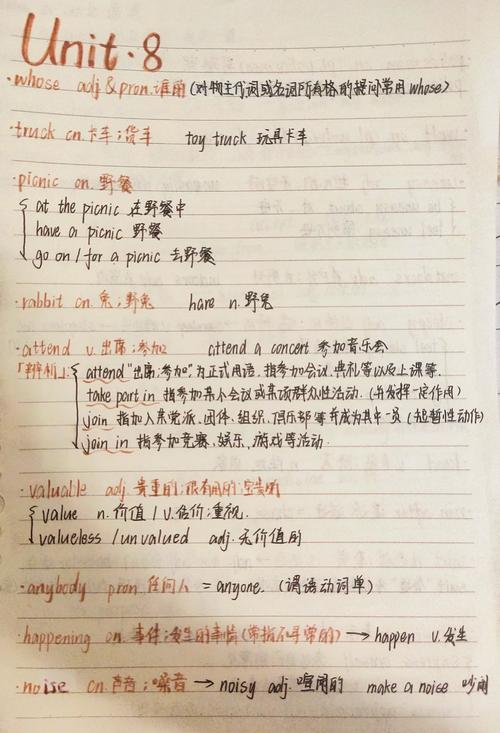 Unit·8
·whose adj & pron.谁的(对物主代词或名词所有格的提问常用whose)
·truck cn.卡车;货车 toy truck 玩具卡车
·picnic cn.野餐
at the picnic 在野餐中
have a picnic 野餐
go on / for a picnic 去野餐
·rabbit cn.兔;野兔 hare n.野兔
·attend v.出席;参加 attend a concert 参加音乐会
「辨析」: attend "出席,参加"为正式用语,指参加会议、典礼等以及上课等.
take part in 指参加某个会议或某项群众性活动.(并发挥一定作用)
join 指加入某党派、团体、组织、俱乐部等并成为其中一员(短暂性动作)
join in 指参加竞赛、娱乐、游戏等活动.
·valuable adj.贵重的;很有用的;宝贵的
value n.价值 / v.估价;重视.
valueless / unvalued adj.无价值的
·anybody pron 任何人 = anyone. (谓语动词单)
·happening cn.事件;发生的事情(常指不寻常的) → happen v.发生
·noise cn.声音;噪音 → noisy adj.喧闹的 make a noise 吵闹